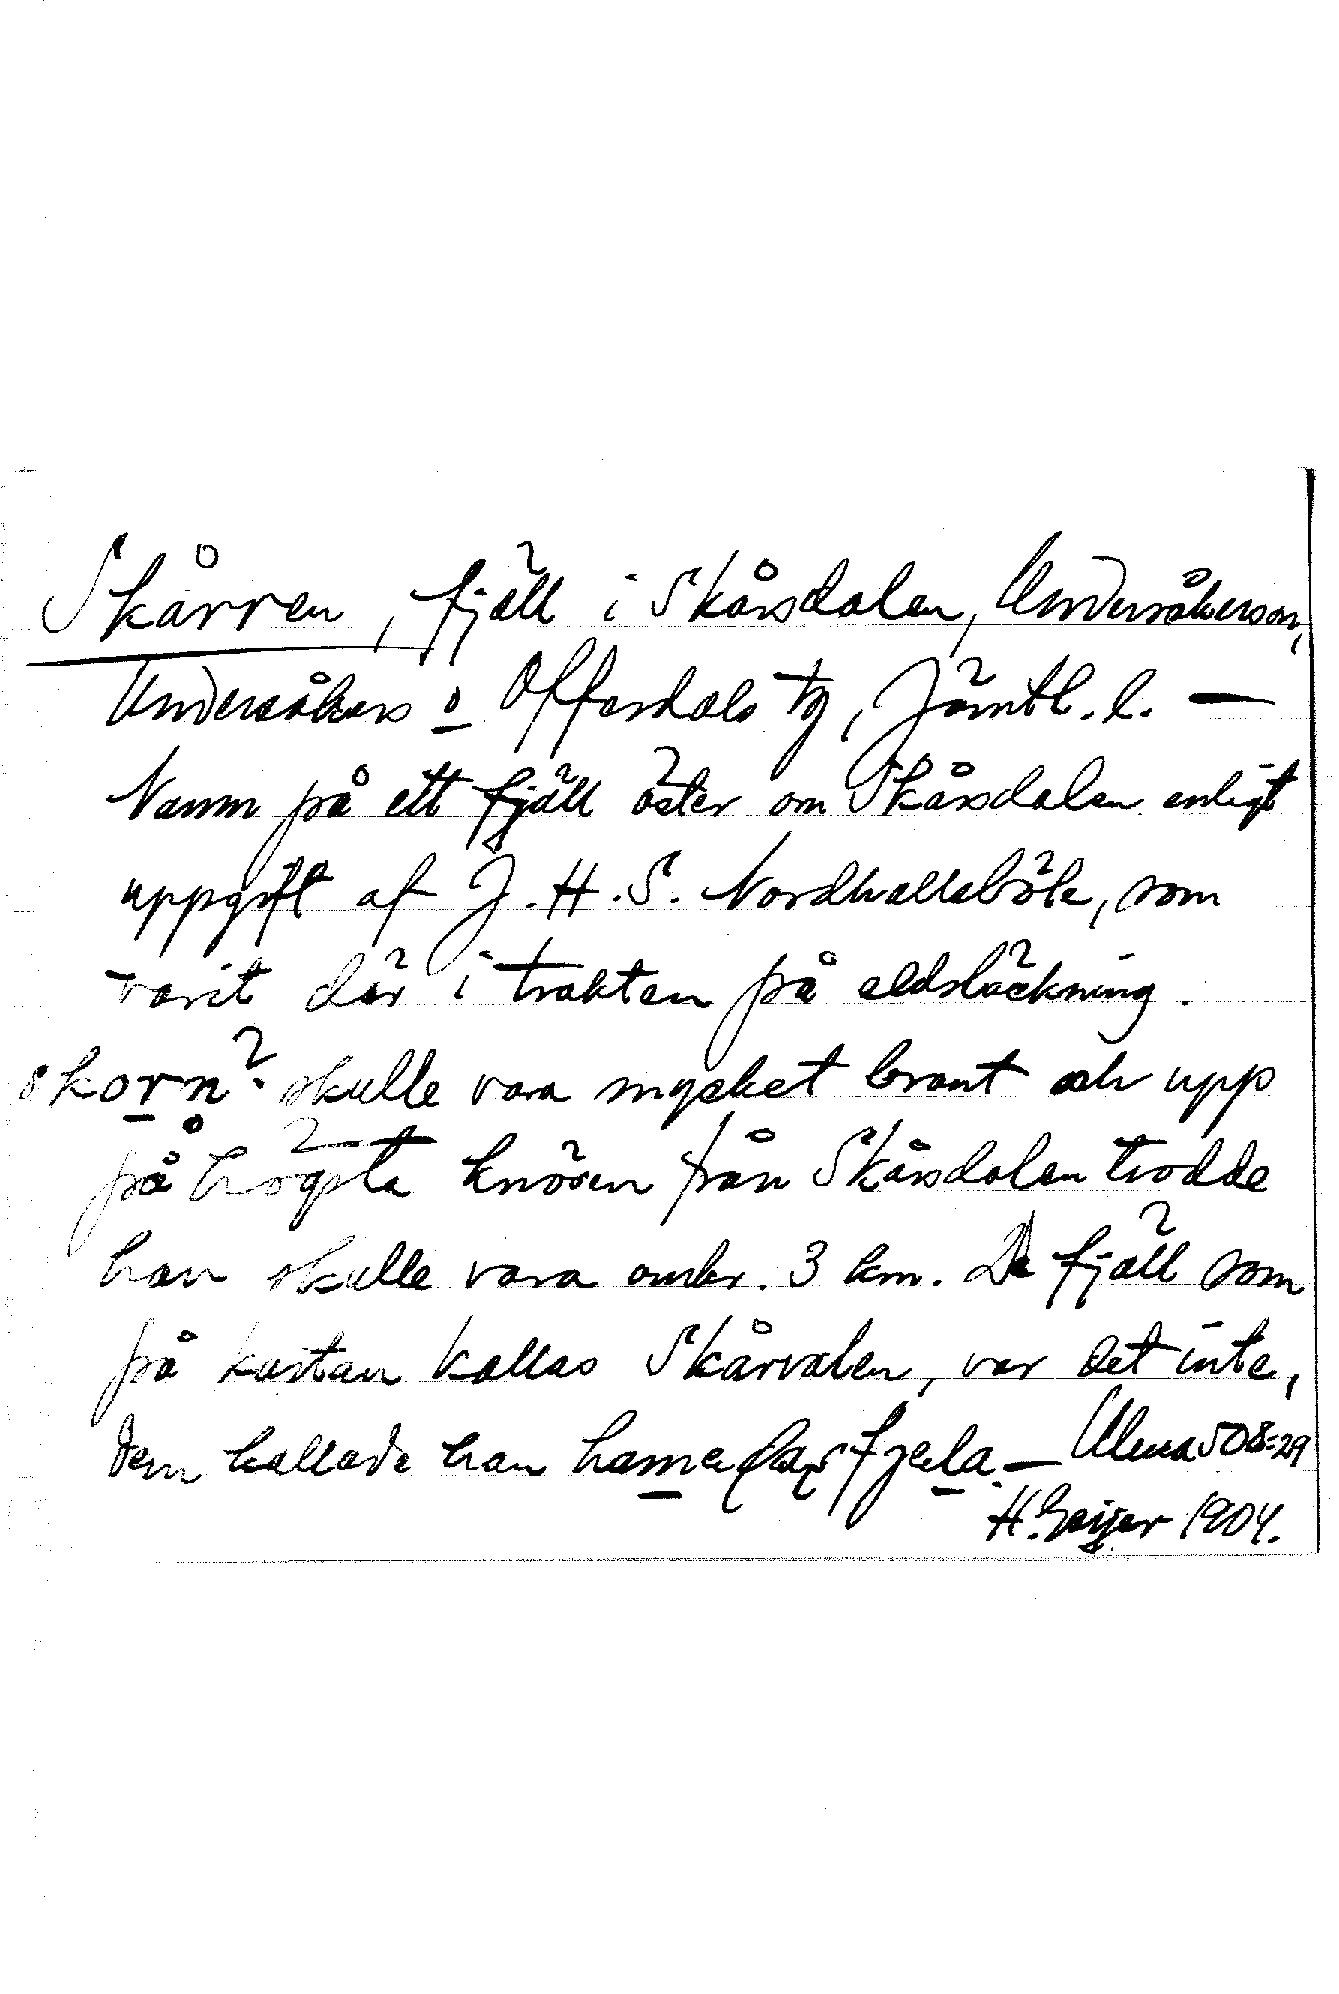 Skårren, fjäll i Skårsdalen, Undersåkers sn,
Undersåkers o Offerdals tg, Jämtl. l. —
Namn på ett fjäll öster om Skårsdalen enligt
uppgift af J. H. S. Nordhallsbök, som
varit där i trakten på eldsläckning.
skorn skulle vara mycket brant och upp
på högsta knösen från Skårsdalen trodde
han skulle vara omkr. 3 km. De fjäll som
på kartan kallas Skårvalen, var det inte,
dem kallade han — Ulma 508:29
H. Geijer 1904.